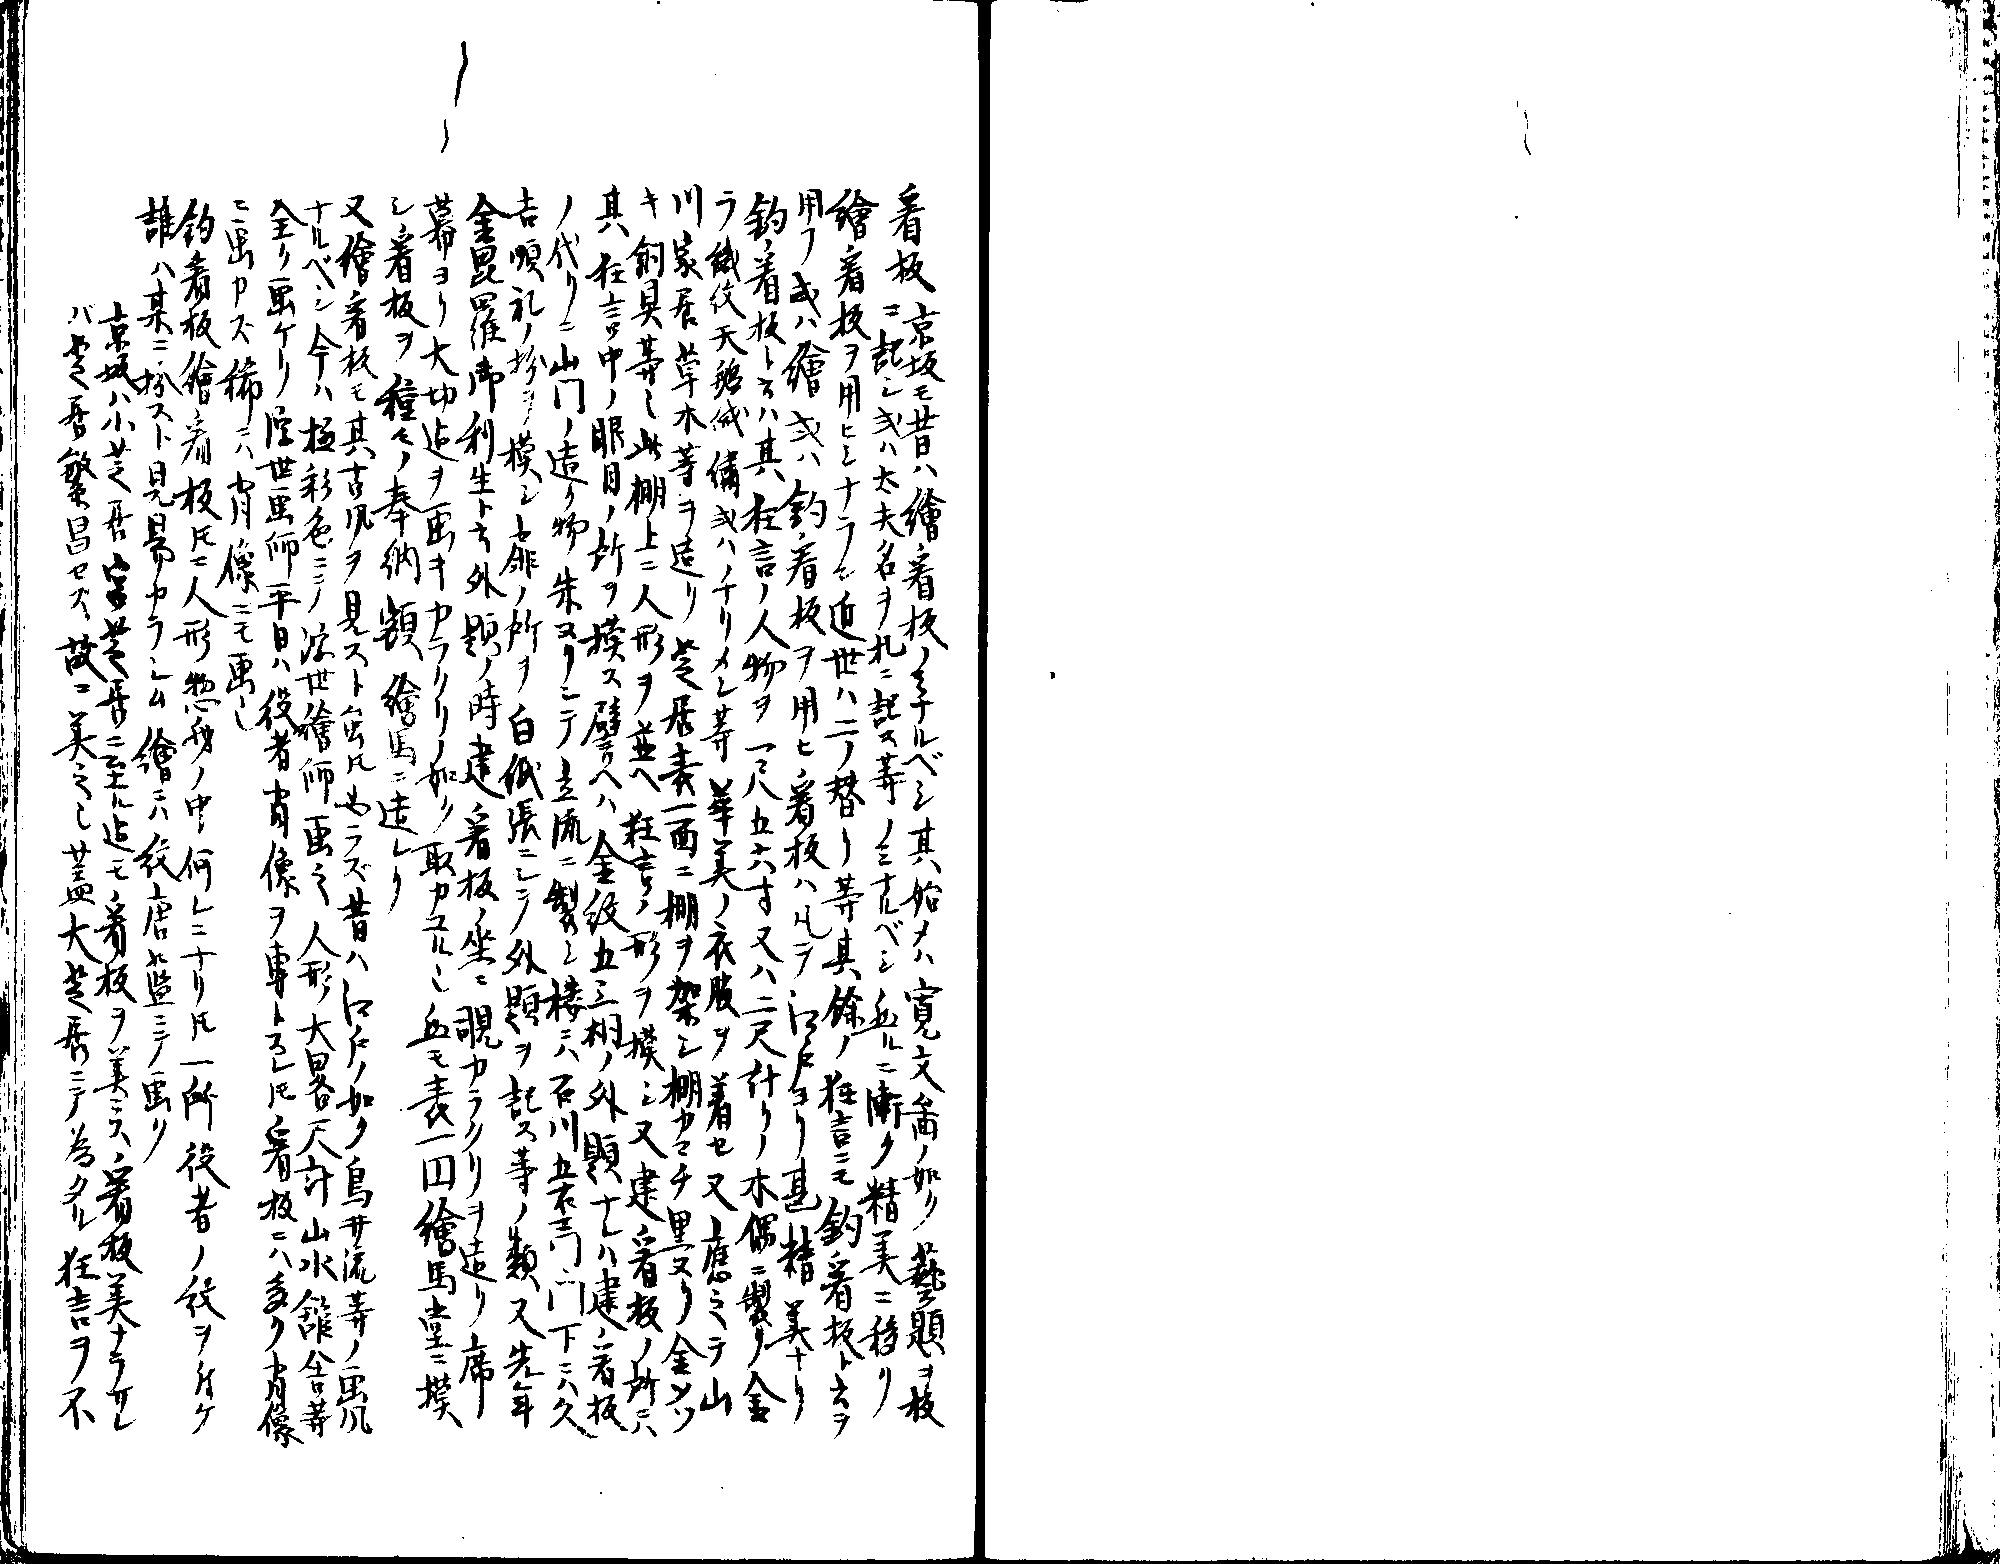 看板 京坂モ昔ハ繪看板ノミナルベシ其始メハ寛文畵ノ如ク藝題ヲ板
ニ記シ或ハ太夫名ヲ札ニ記ス等ノミナルベシ然ルニ漸ク精美ニ移リ
繪看板ヲ用ヒシナラン近世ハ二ノ替リ等其餘ノ狂言ニモ釣看板ト云ヲ
用フ或ハ繪或ハ釣看板ヲ用ヒ看板ハ凡ヲ江戸ヨリ甚精美ナリ
釣看板ト云ハ其狂言ノ人物ヲ一尺五六寸又ハ二尺計リノ木偶ニ製リ金
ラ纎伩天鵞絨繡或ハチリメン等華美ノ衣服ヲ着セ又應之テ山
川家居草木等ヲ造リ芝居表一面ニ棚ヲ架シ棚カマチ黒ヌリ金メツ
キ錺具等也此棚上ニ人形ヲ並ヘ狂言ノ形ヲ摸シ又建看板ノ所ニハ
其狂言中ノ眼目ノ所ヲ摸ス譬ヘハ金紋五三桐ノ外題ナレハ建看板
ノ代リニ山門ノ造リ物朱ヌリニテ立流ニ製シ楼ニハ石川五右エ門門下ニハ久
吉順礼ノ扮ヲ摸シ扉ノ所ヲ白紙張ニシテ外題ヲ記ス等ノ類又先年
金毘羅御利生ト云外題ノ時建看板ノ坐ニ覗カラクリヲ造リ席
幕ヨリ大切迠ヲ画キカラクリノ如ク取カユル也然モ表一囙繪馬堂ニ摸
シ看板ヲ種々ノ奉納額繪馬ニ造レリ
又繪看板モ其古風ヲ見スト虽氏必ラズ昔ハ江戸ノ如ク鳥井流等ノ画風
ナルベシ今ハ極彩色ニテ浮世繪師画之人形大畧一尺計山水舘舎等
全ク画ケリ浮世画師平日ハ役者肖像ヲ専トスレ氏看板ニハ多ク肖像
ニ画カズ稀ニハ肖像ニモ画ク
釣看板繪看板氏ニ人形惣身ノ中何レニナリ氏一所役者ノ紋ヲ付ケ
誰ハ某ニ扮スト見易カラシム繪ニハ紋唐花藍ニテ画ク
京坂ハ小芝居宮芝居ニ至ル迠モ看板ヲ美ニス看板美ナラザレ
バ芝居繁昌セズ故ニ美之也蓋大芝居ニテ為タル狂言ヲ不